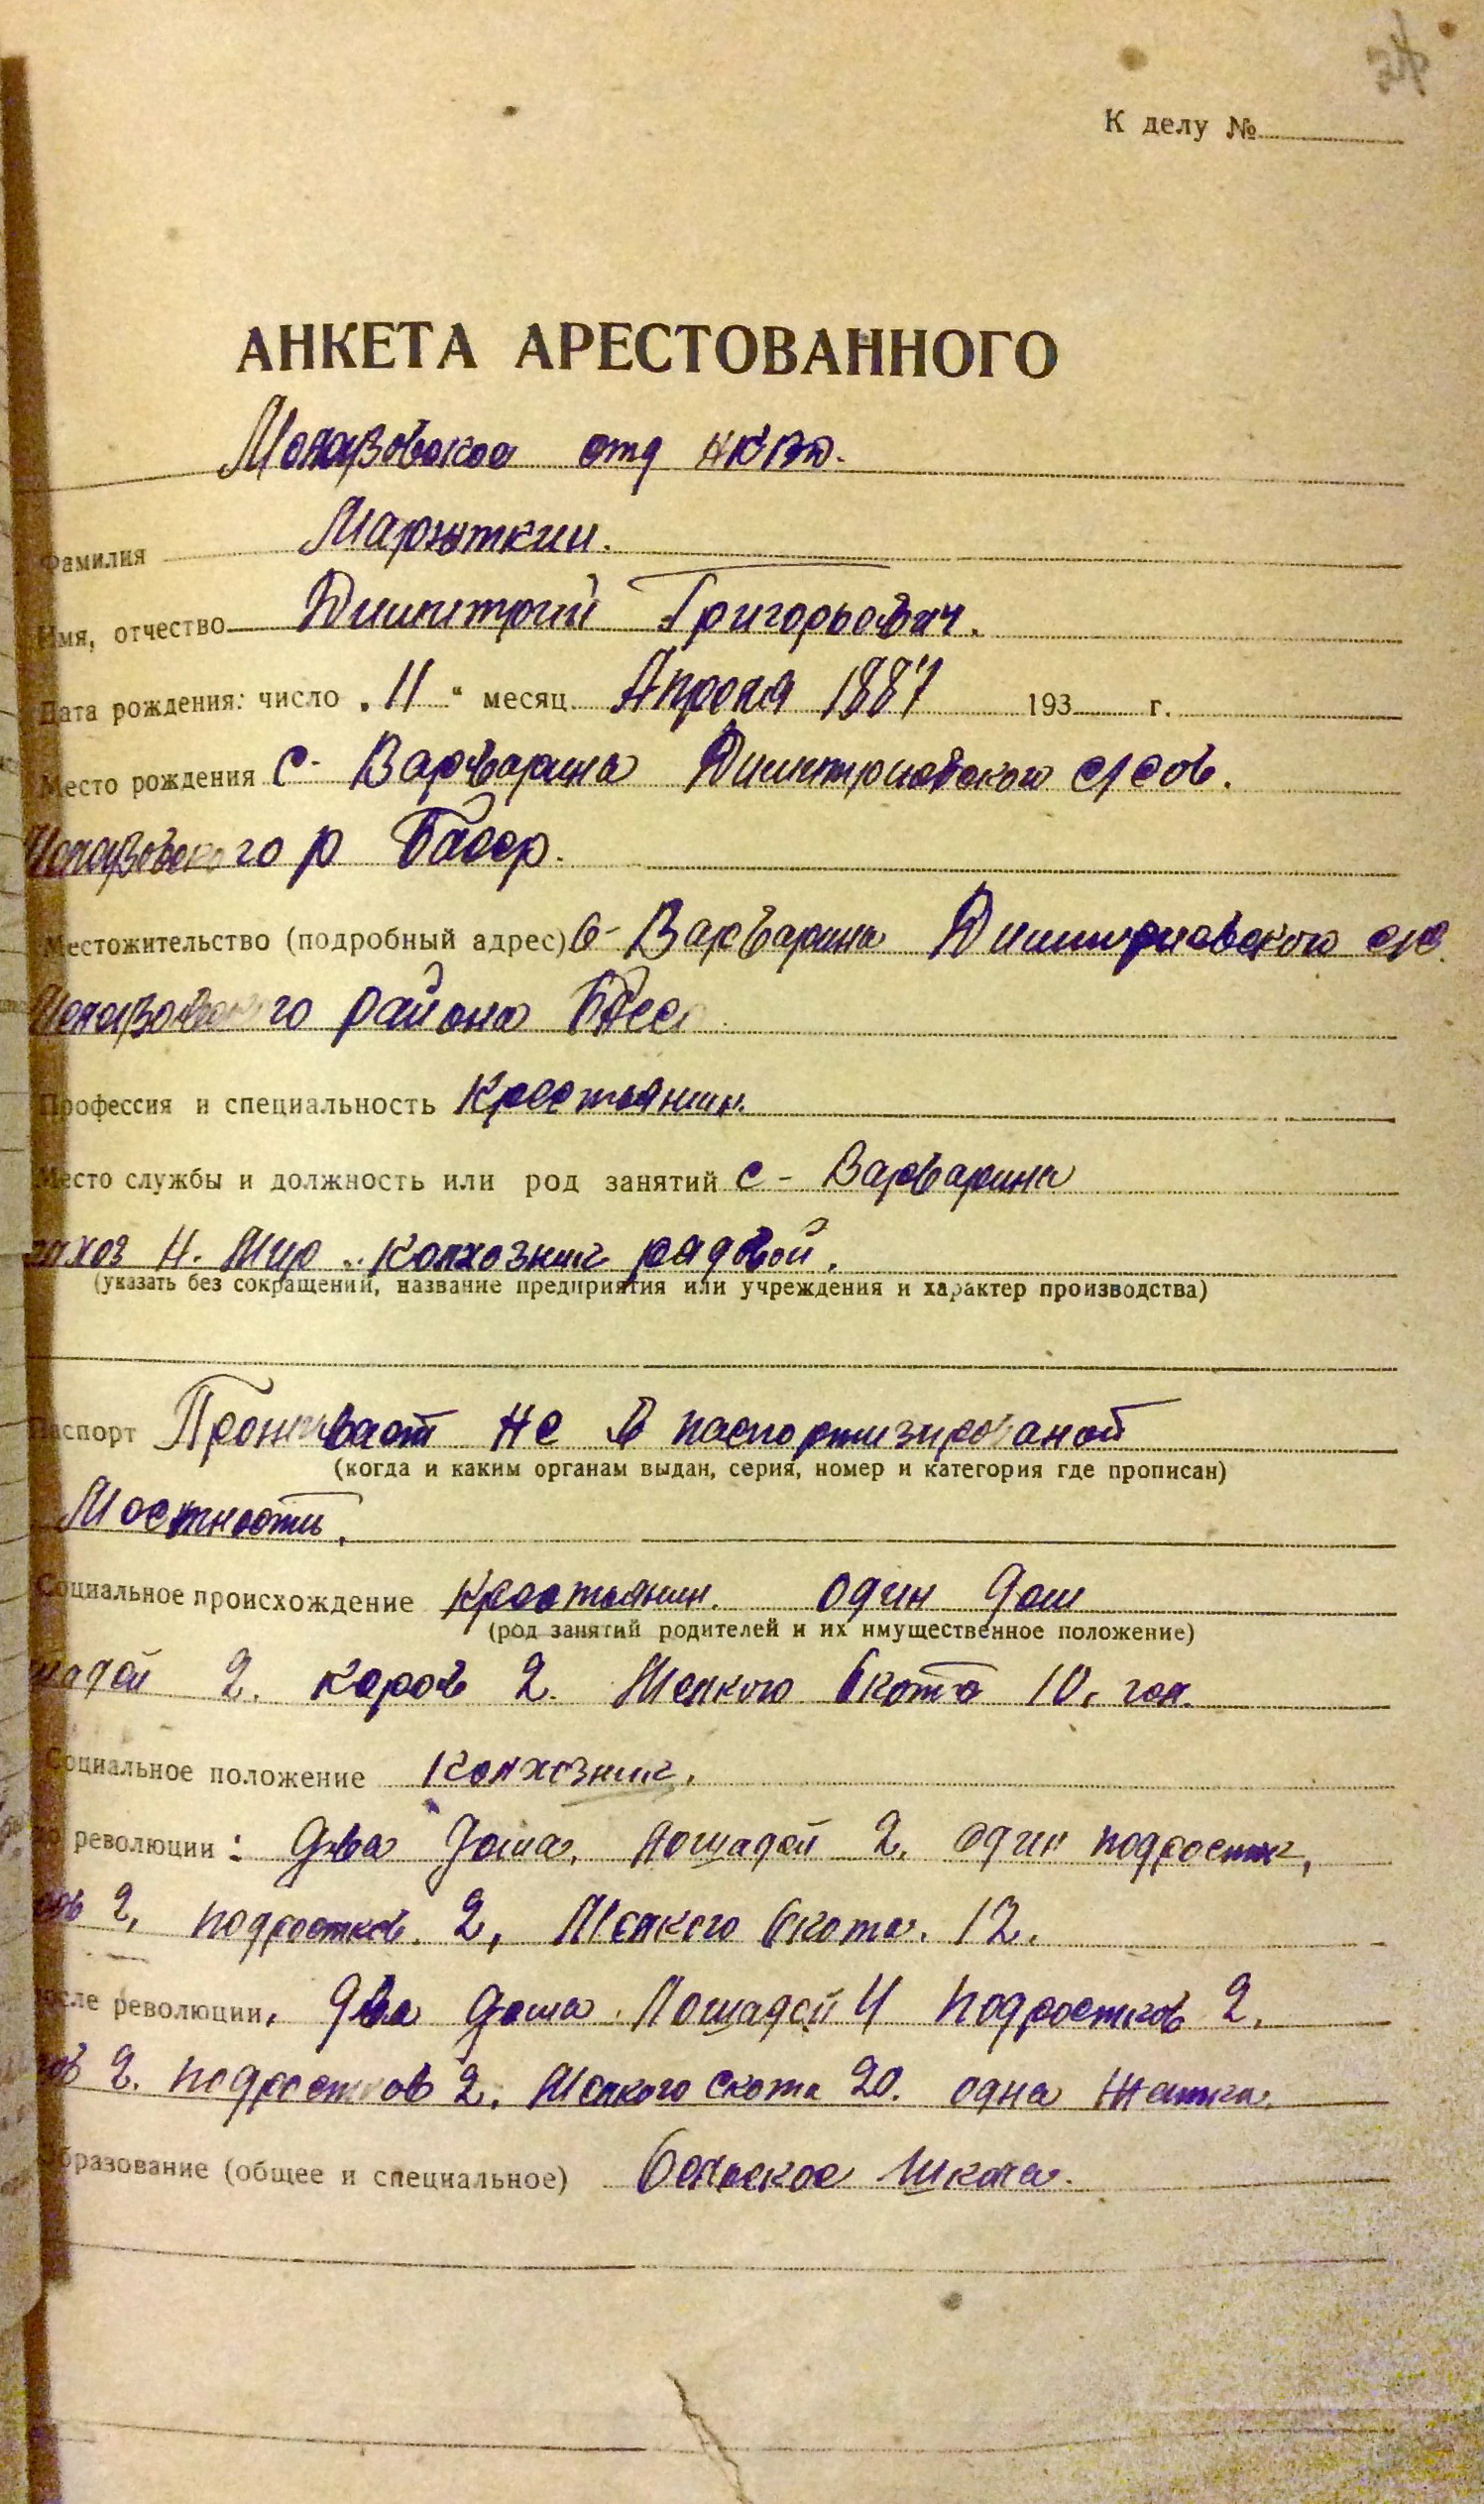 К делу №
АНКЕТА АРЕСТОВАННОГО
Мелеузовское отд НКВД.
Фамилия Марюткин.
Имя, отчество Димитрий Григорьевич.
Дата рождения: число „11“ месяц Апреля 1887 193 г.
Место рождения с- Варварина Димитриевского с/сов.
Мелеузовского р Башсср.
Местожительство (подробный адрес) с- Варварина Димитриевского с/с.
Мелеузовского района
Профессия и специальность Крестьянин.
Место службы и должность или род занятий с- Варварина
Н. Мир колхозник рядовой.
(указать без сокращений, название предприятия или учреждения и характер производства)
Паспорт Проживает не в паспортизированой
(когда и каким органам выдан, серия, номер и категория где прописан)
Местности.
Социальное происхождение Крестьянин. один дом
(род занятий родителей и их имущественное положение)
шадей 2. коров 2. Мелкого скота 10. гол.
Социальное положение Колхозник.
до революции: два дома, лошадей 2, один подросток,
ров 2, подростков. 2, Мелкого скота. 12.
после революции, два дома. Лошадей 4 подростков 2.
ров 2. подростков 2. Мелкого скота 20. одна жатка.
Образование (общее и специальное) Сельское школа.